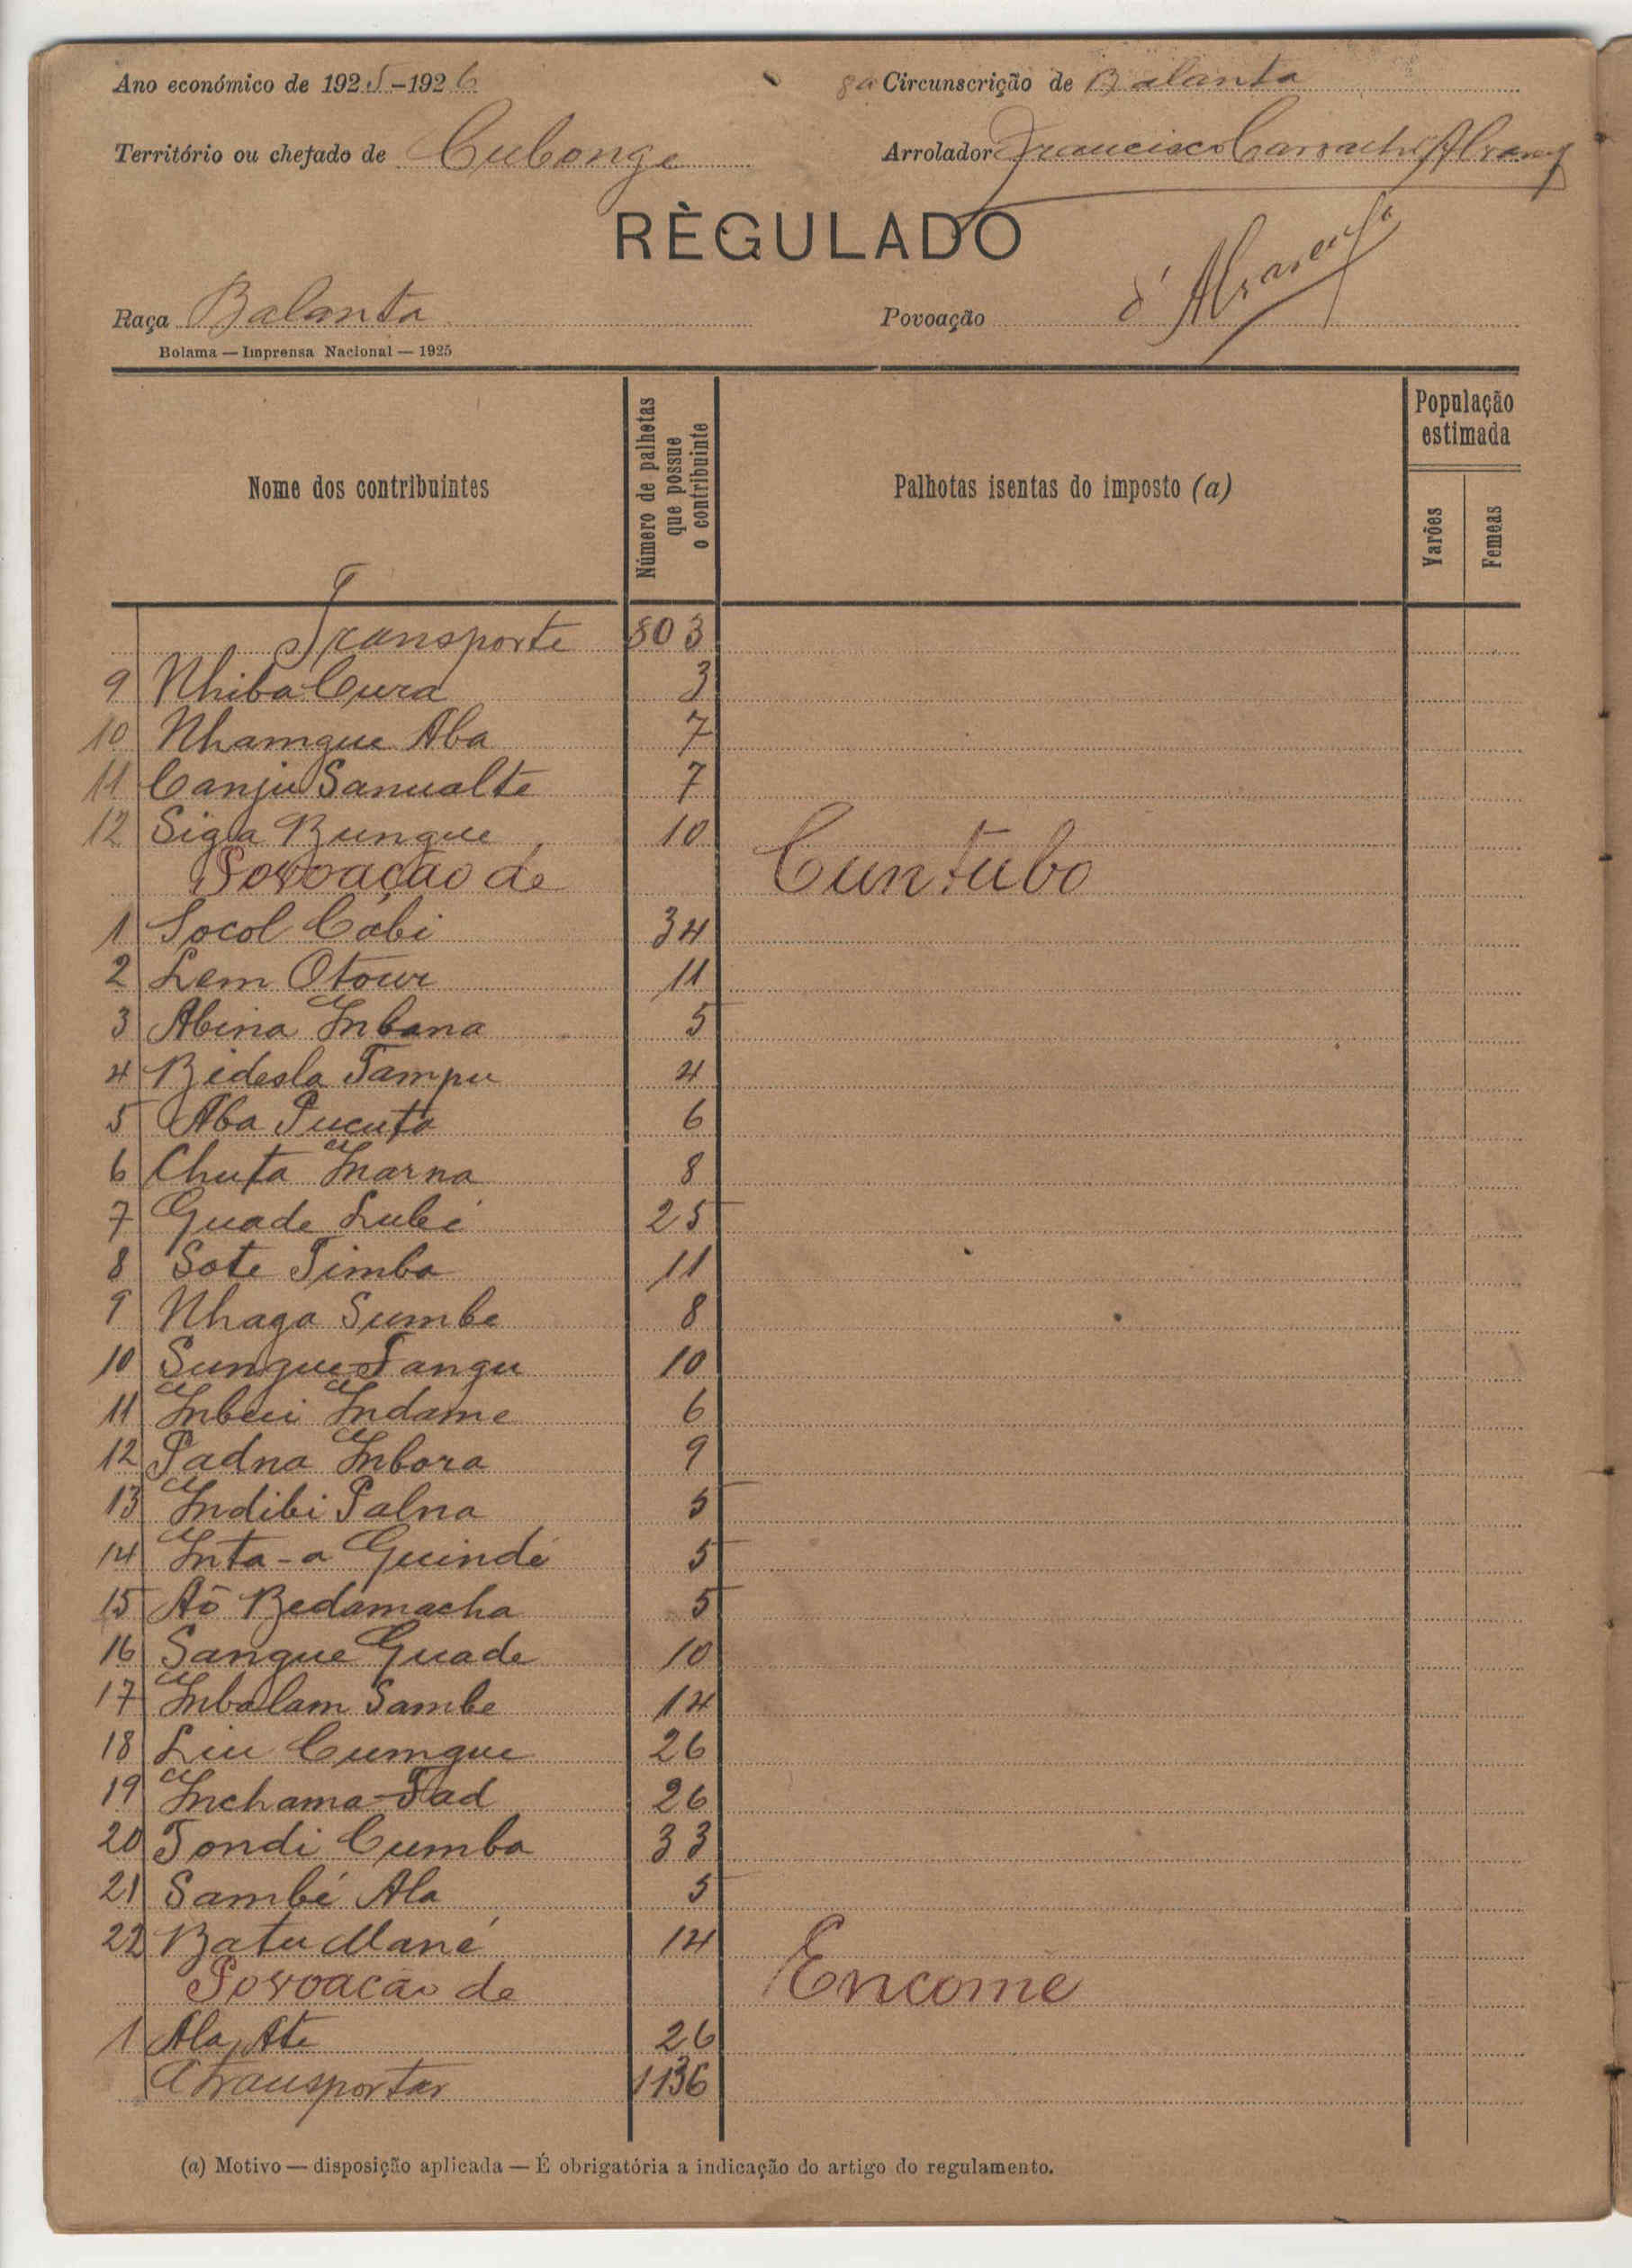 Ano económico de 1925-1926
8a Circunscrição de Balanta
Território ou chefado de Cubonge
Arrolador Francisco
RÈGULADO
d'
Raça Balanta
Povoação
Bolama — Imprensa Nacional — 1925
Nome dos contribuintes
Número de palhetas que possue o contribuinte
Palhotas isentas do imposto (a)
População estimada
Varões
Femeas
Transporte 803
9 Nhiba Cura 3
10 Nhamgue Aba 7
11 Canju Sanualte 7
12 Siga Bungue 10
Povoação de Cuntubo
1 Socol Cabi 34
2 Lem Otour 11
3 Abina Inbana 5
4 Bidesla Tampu 4
5 Aba Pucuta 6
6 Chuta Inarna 8
7 Guade Lubi 25
8 Sote Timba 11
9 Nhaga Sumbe 8
10 Sungue Tangu 10
11 Inbeii Indame 6
12 Padna Inbora 9
13 Indibi Palna 5
14 Inta-a Guindé 5
15 Aō Bedamacha 5
16 Sangue Guade 10
17 Inbalam Sambe 14
18 Liu Cumgue 26
19 Inchama Fad 26
20 Tondi Cumba 33
21 Sambé Ala 5
22 Batu Mané 14
Povoação de Encome
1 Ala Ate 26
A transportar 1136
(a) Motivo — disposição aplicada — É obrigatória a indicação do artigo do regulamento.